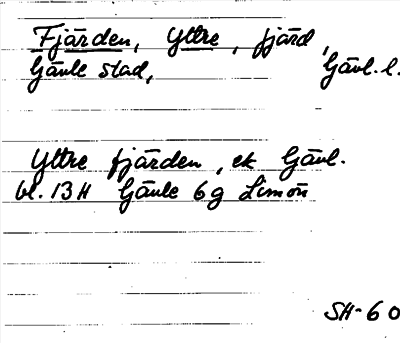 Fjärden, Yttre, fjärd,
Gävle stad, Gävl. l.
Yttre fjärden, ek Gävl.
bl. 13H Gävle 6g Limön
SH-60